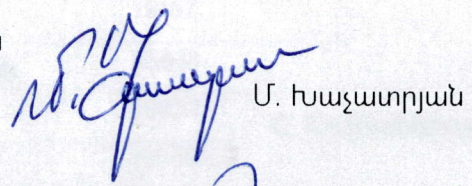 Մ. Խաչատրյան